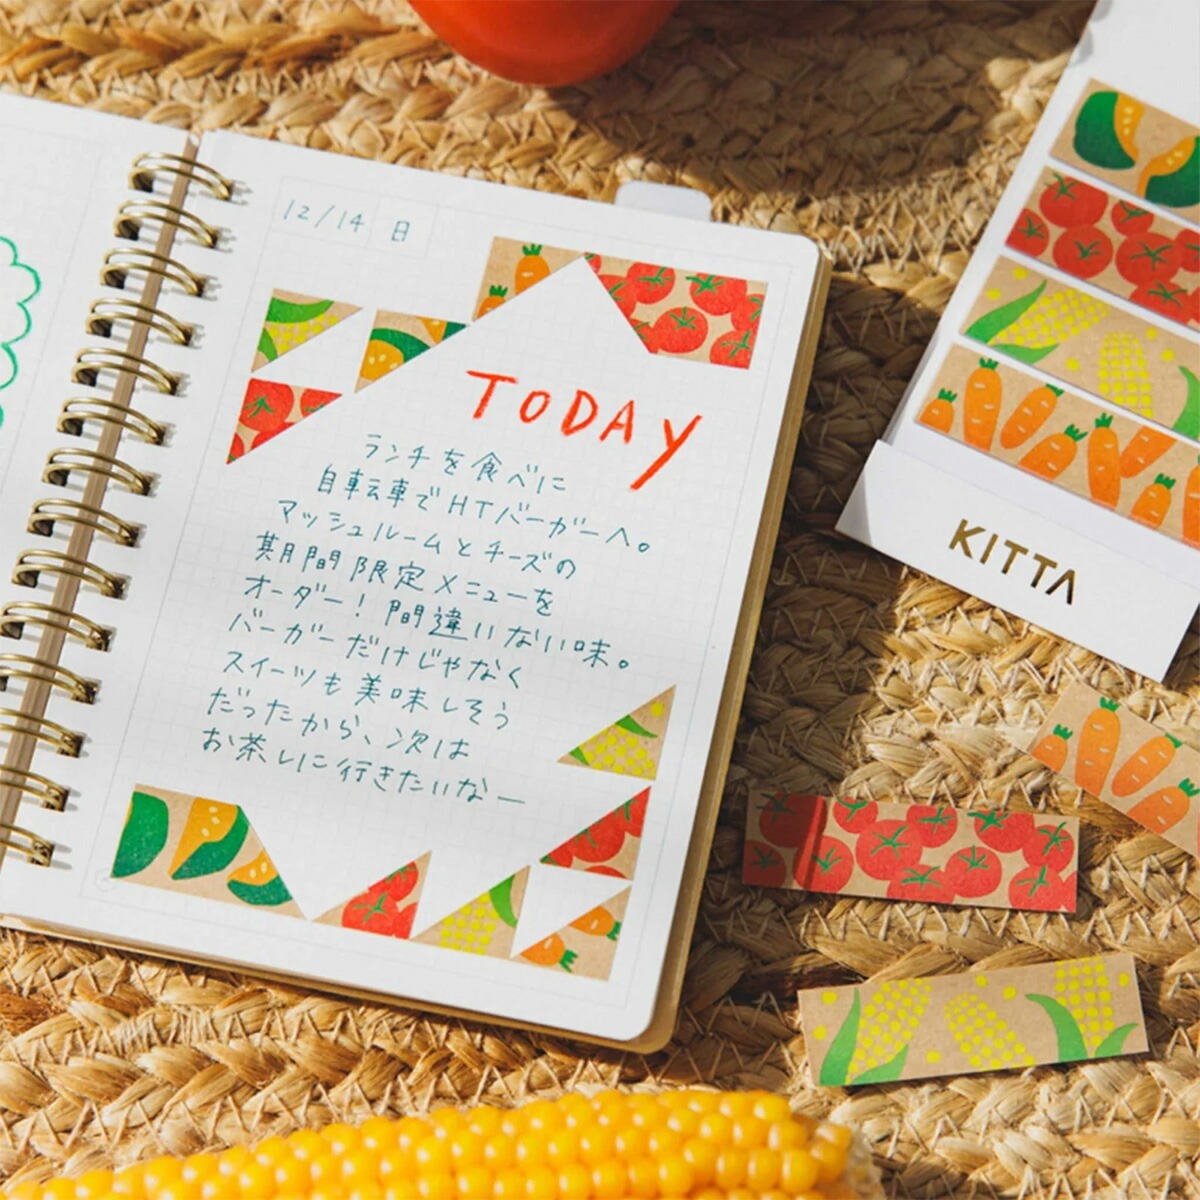 12/14 日
TODAY
ランチを食べに
自転車でHTバーガーへ。
マッシュルームとチーズの
期間限定メニューを
オーダー！間違いない味。
バーガーだけじゃなく
スイーツも美味しそう
だったから、次は
お茶しに行きたいなー
KITTA